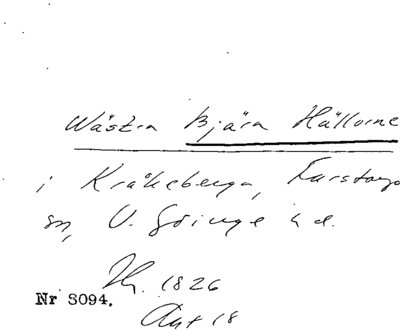 Wästra Bjära Hällorne
i Kråkeberga, Farstorps
sn, V. Göinge hd.
Hg. 1826
Nr 8094.
Akt 18